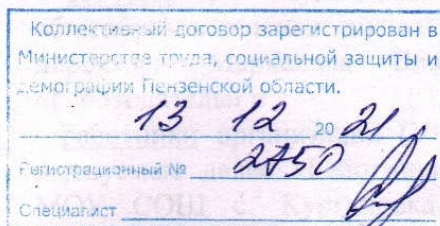 Коллективный договор зарегистрирован в
Министерстве труда, социальной защиты и
демографии Пензенской области.
13 12 20 21
Регистрационный № 2750
Специалист